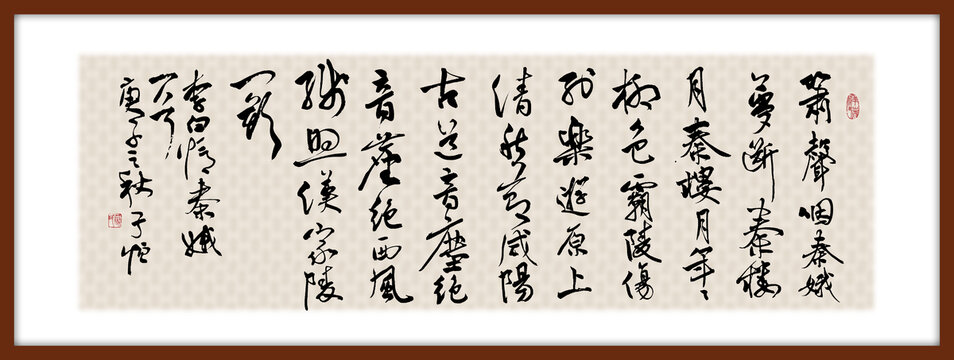 簫聲咽秦娥
夢斷秦樓
月秦樓月年々
柳色霸陵傷
別樂遊原上
清秋節咸陽
古道音塵絕
音塵絕西風
殘照漢家陵
闕
李白憶秦娥
庚子之秋子恒